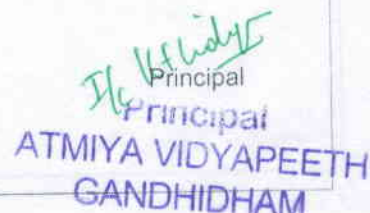 I/c
Principal
Principal
ATMIYA VIDYAPEETH
GANDHIDHAM